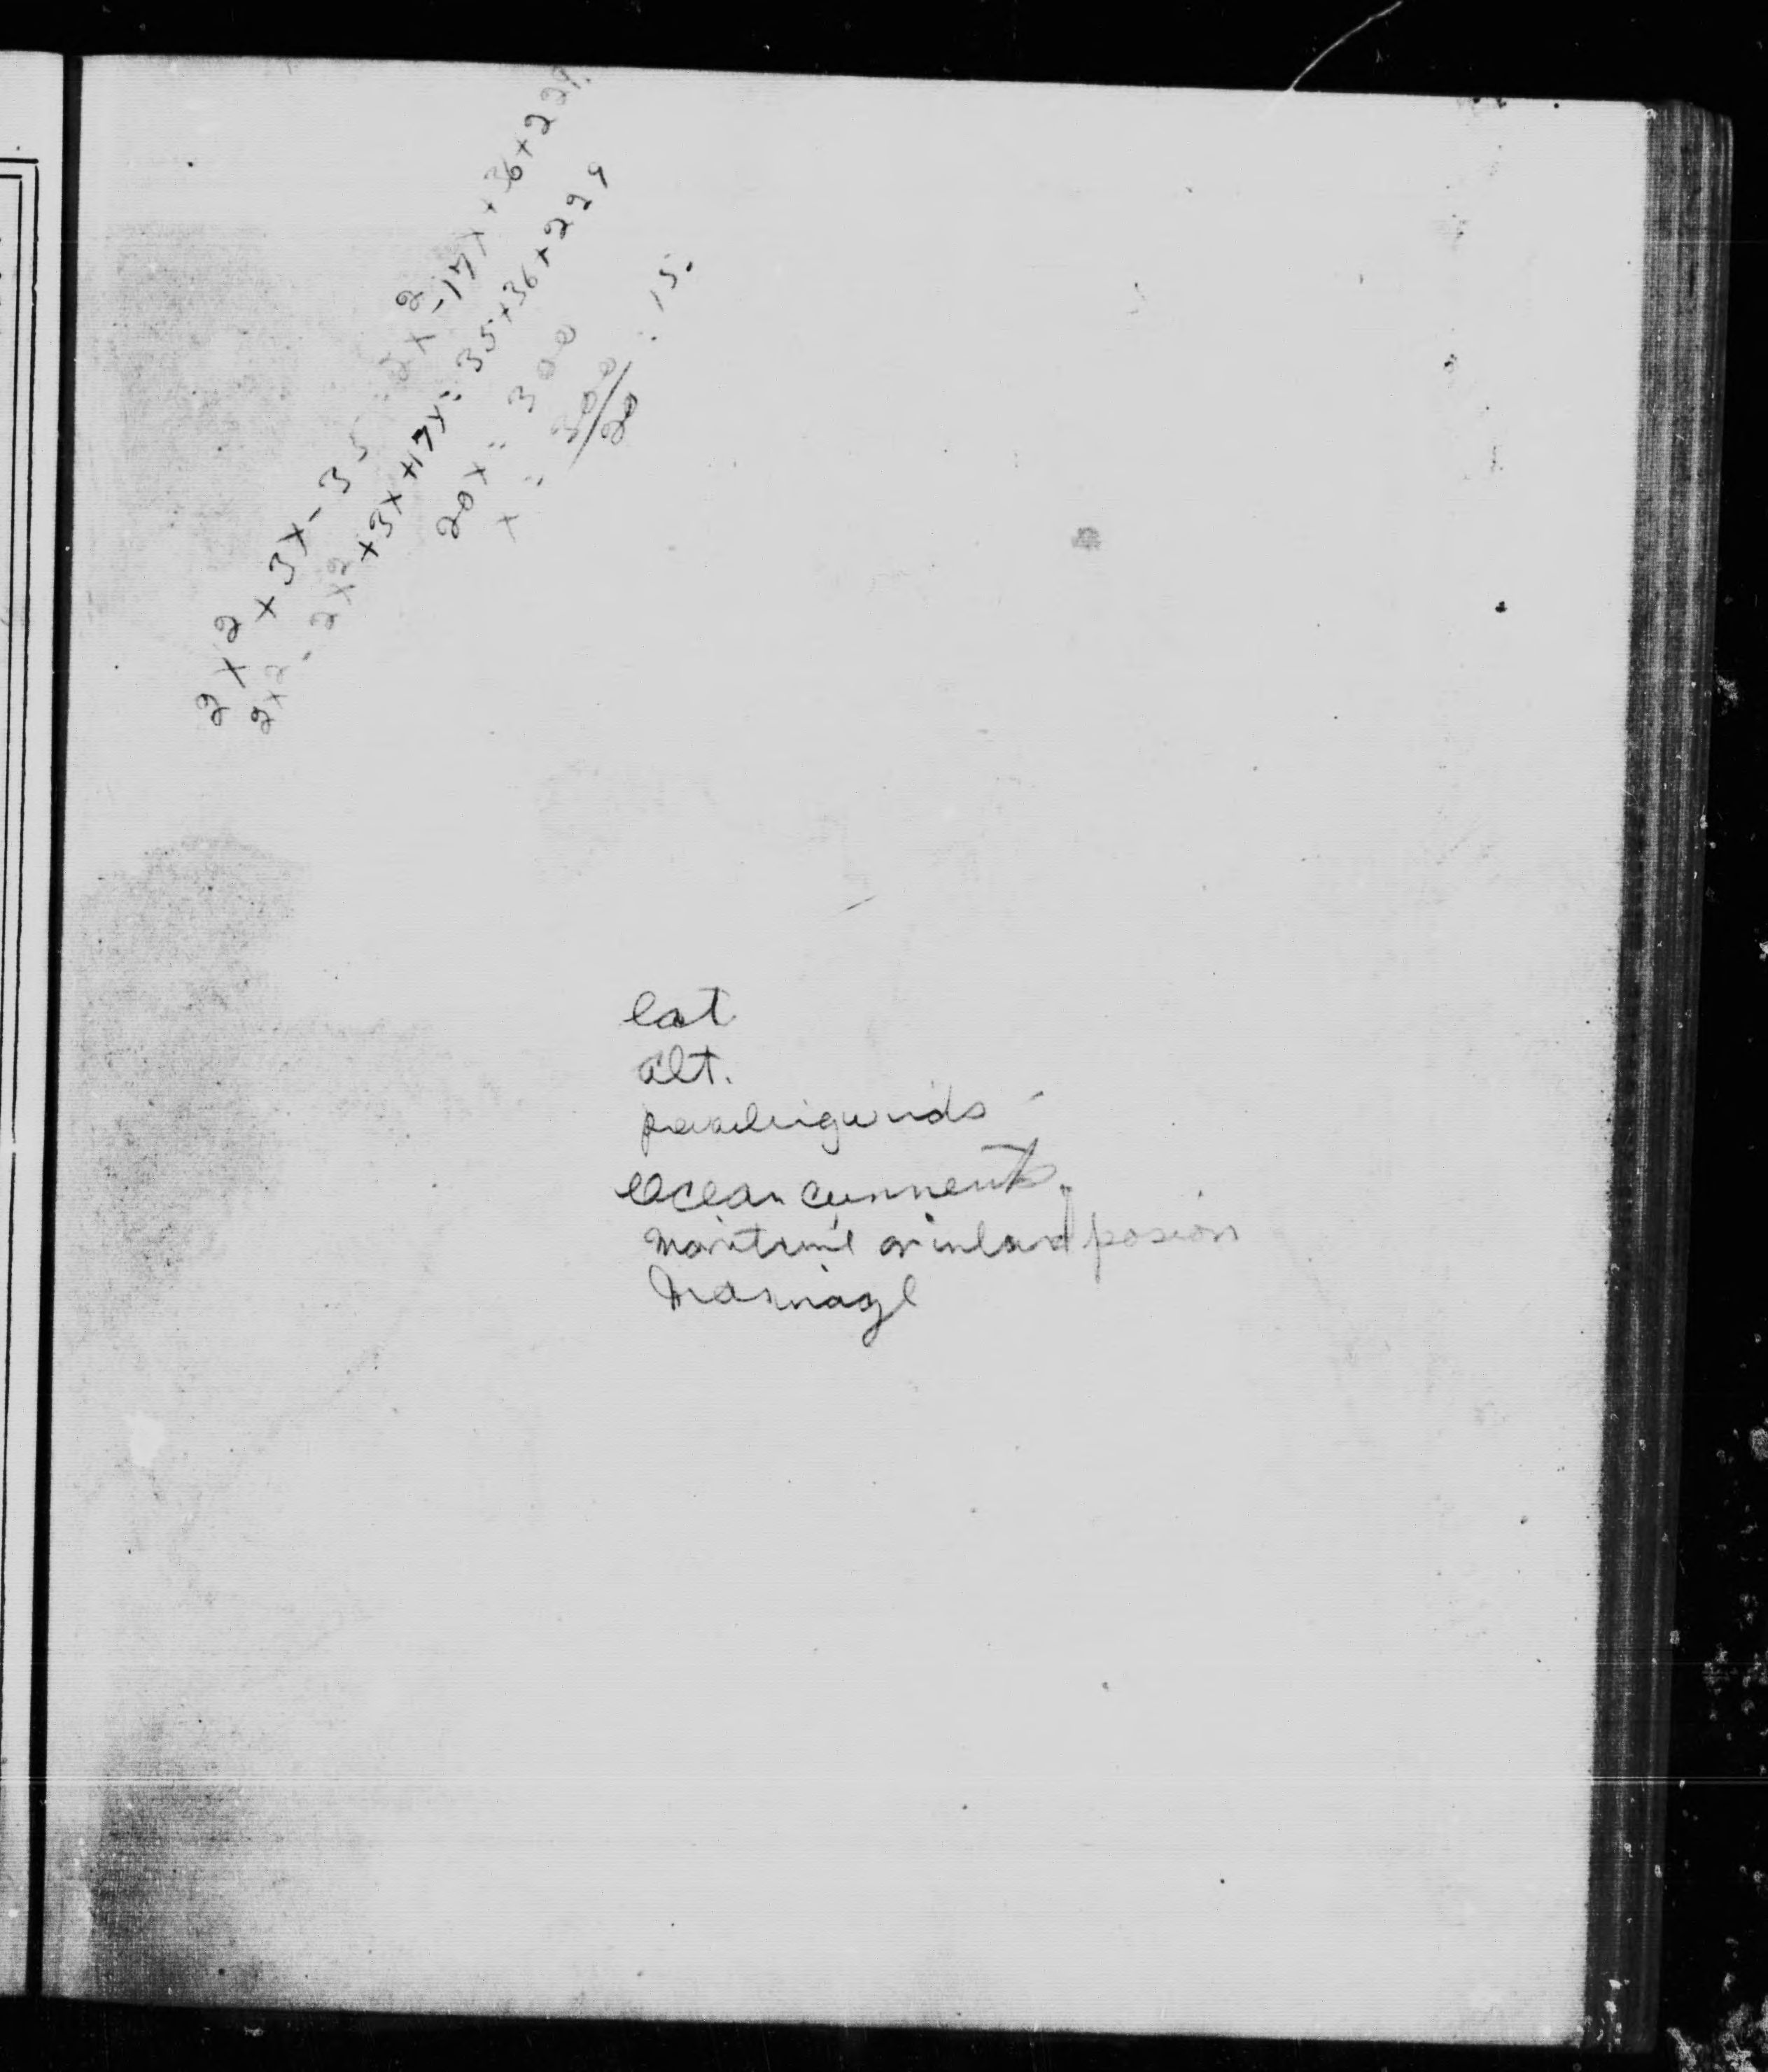 2x² + 3x - 35 = 2x² - 17x + 36 + 229.
2x² - 2x² + 3x + 17x = 35 + 36 + 229
20x = 300
x = 300/20 = 15.
lat
alt.
Ocean currents.
maritime or inland posion